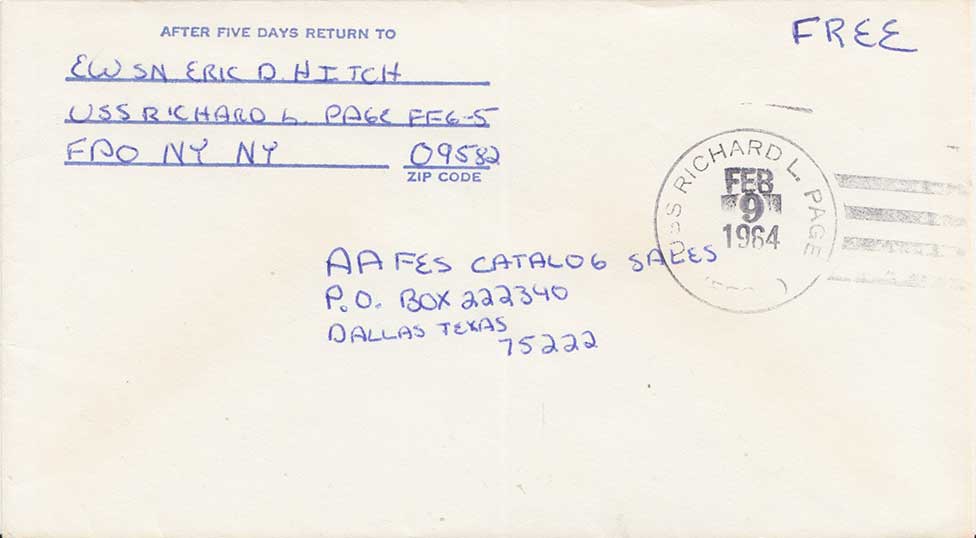 AFTER FIVE DAYS RETURN TO
EWSN ERIC D. HITCH
USS RICHARD L. PAGE FFG-5
FPO NY NY 09582
ZIP CODE
FREE
USS RICHARD L. PAGE
FEB
9
1964
AAFES CATALOG SALES
P.O. BOX 222340
DALLAS TEXAS
75222